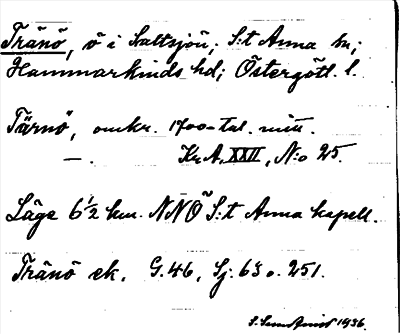 Tränö, ö i Saltsjön; S:t Anna sn;
Hammarkinds hd; Östergötl. l.
Tärnö, omkr. 1700-tal. mitt.
—. Kr A, XXII, N:o 25.
Läge 6 1/2 km. NNÖ S:t Anna kapell.
Tränö ek. G. 46, Sj. 63 o. 251.
1936.